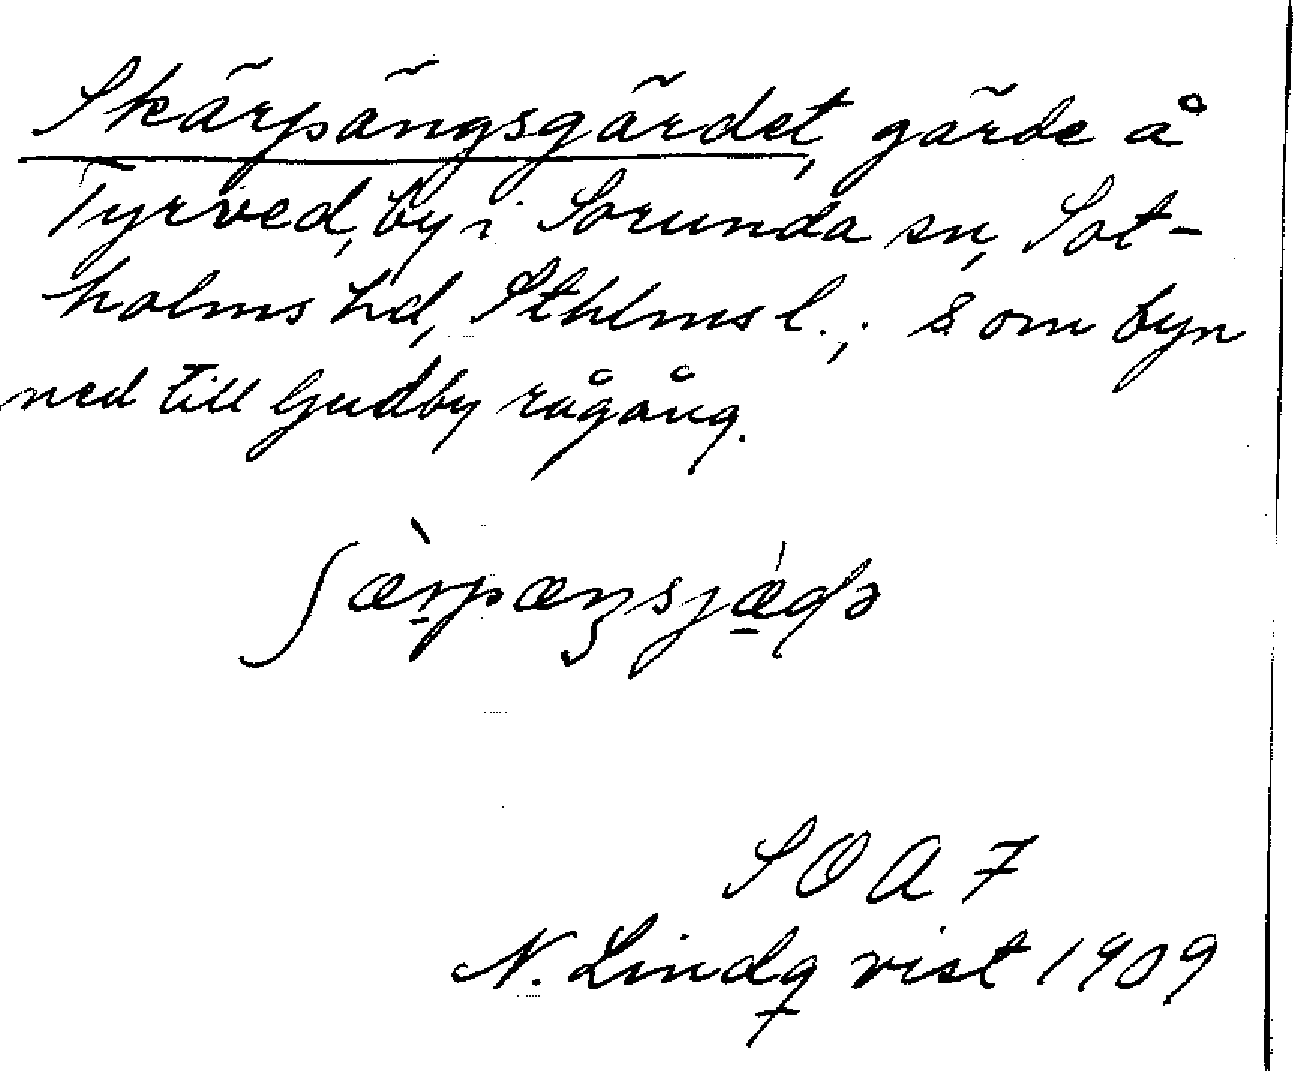 Skärpängsgärdet, gärde å
Tyrved, by i Sorunda sn, Sot-
holms hd, Sthlms l.; S om byn
ned till Gudby rågång.
SOAF
N. Lindqvist 1909